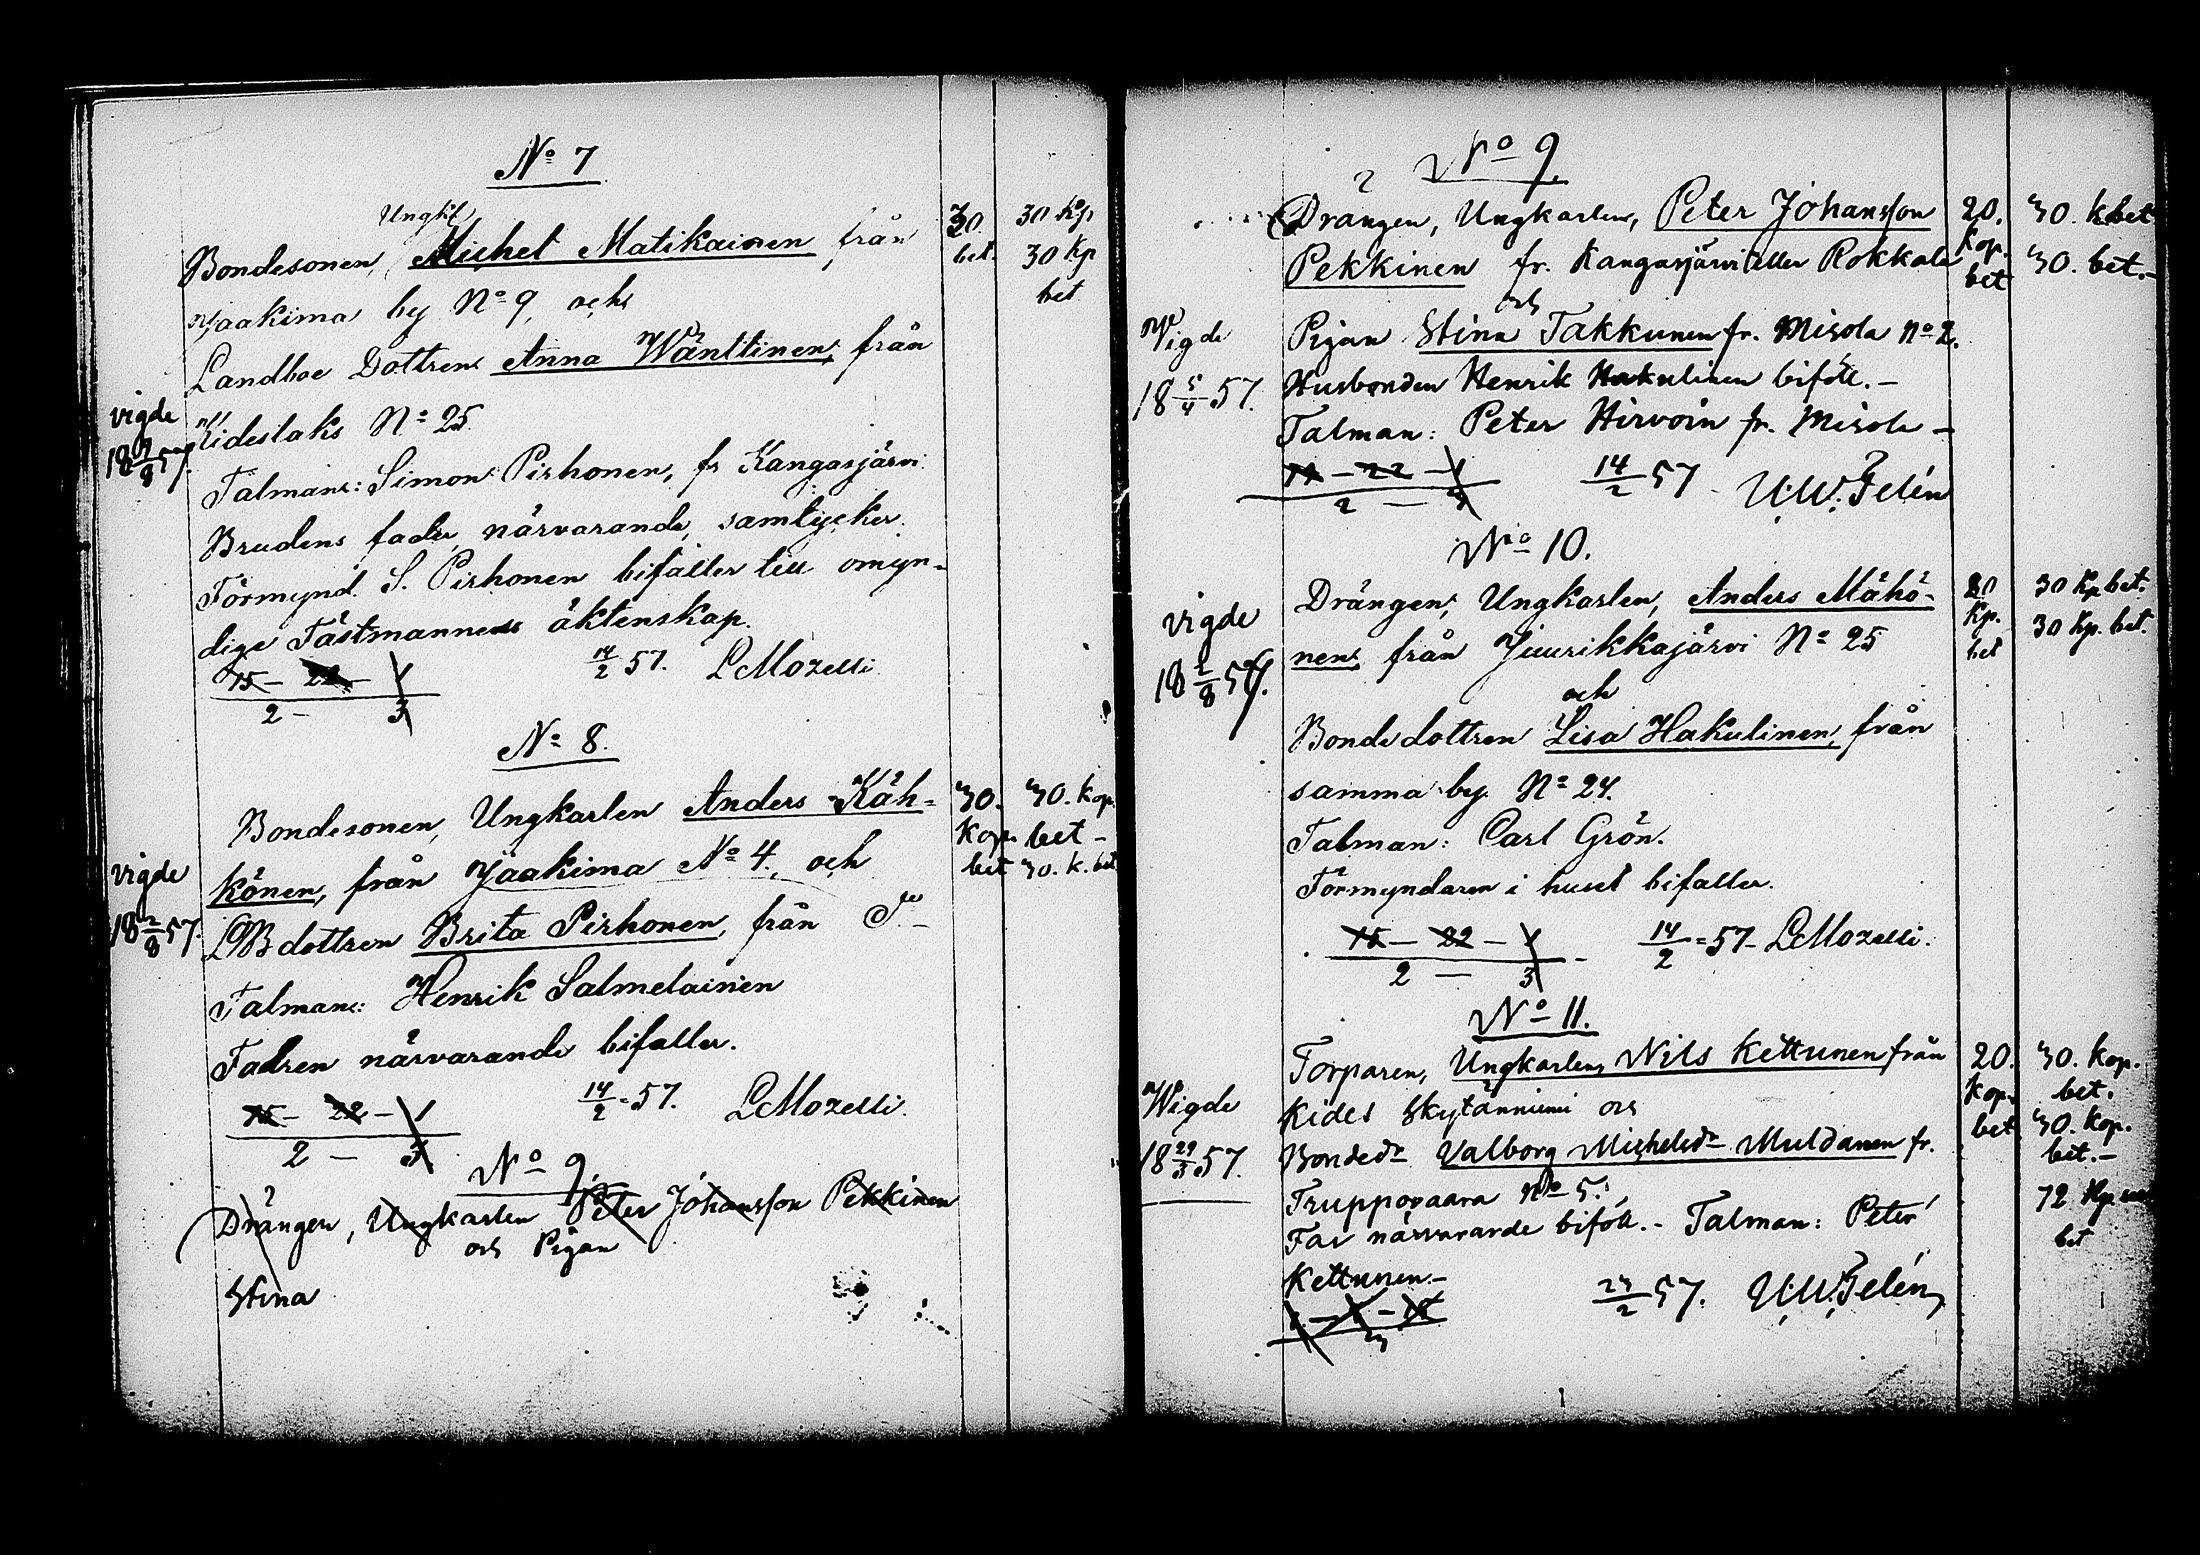 No 7
Ungk
Bondesonen, Michel Matikainen från
Jaakima by No 9, och
Landboe Dottren Anna Wänttinen, från
Kideslaks No 25
Talman: Simon Pirhonen, fr Kangasjärvi
Brudens fader, närvarande, samtycker.
Förmynd. S. Pirhonen bifaller till omyn-
dige Fästmannens äktenskap.
15 – 22 – 1
2 – 3
14/2 57. L Mozelli
vigde
18 57.
20.
bet.
30 Kp
30 Kp
bet
No 8.
Bondesonen, Ungkarlen Anders Käh-
könen, från Jaakima No 4, och
LB dottren Brita Pirhonen, från
Talman: Henrik Salmelainen
Fadren närvarande bifaller.
15 – 22 – 1
2 – 3
14/2 57. L Mozelli.
vigde
18 2/8 57.
30.
Kop.
bet
30. Kop.
bet –
30. k. bet
No 9.
Drängen, Ungkarlen Peter Johansson Pekkinen
och Pigan
Stina
No 9.
Drängen, Ungkarlen, Peter Johansson
Pekkinen fr. Kangasjärvi eller Rokkala
och
Pigan Stina Takkunen fr. Misola No 2.
Husbonden Henrik Hakulinen biföll. –
Talman: Peter Hirvoin fr. Misola –
22 – 1
2 – 3
14/2 57 U.W. Telén
Vigde
18 5/4 57.
20.
Kop.
bet
30. k bet
30. bet. –
No 10.
Drängen, Ungkarlen, Anders Mähö-
nen, från Juurikkajärvi No 25
och
Bonde dottren Lisa Hakulinen, från
samma by No 24.
Talman: Carl Grön.
Förmyndaren i huset bifaller.
15 – 22 – 1
2 – 3
14/2 57 – L Mozelli.
vigde
18 2/8 57.
20
Kp.
bet
30 Kp bet.
30 Kp. bet.
No 11.
Torparen, Ungkarlen, Nils Kettunen från
Kides Skytänniemi och
Bondedr Valborg Michelsdr Muldanen fr.
Truppovaara No 5.
Far närvarande biföll. – Talman: Peter
Kettunen –
2 57. U.W. Telén
Wigde
18 29/3 57.
20.
Kop.
bet
30. Kop.
bet.
30. Kop.
bet. –
72 Kp
bet